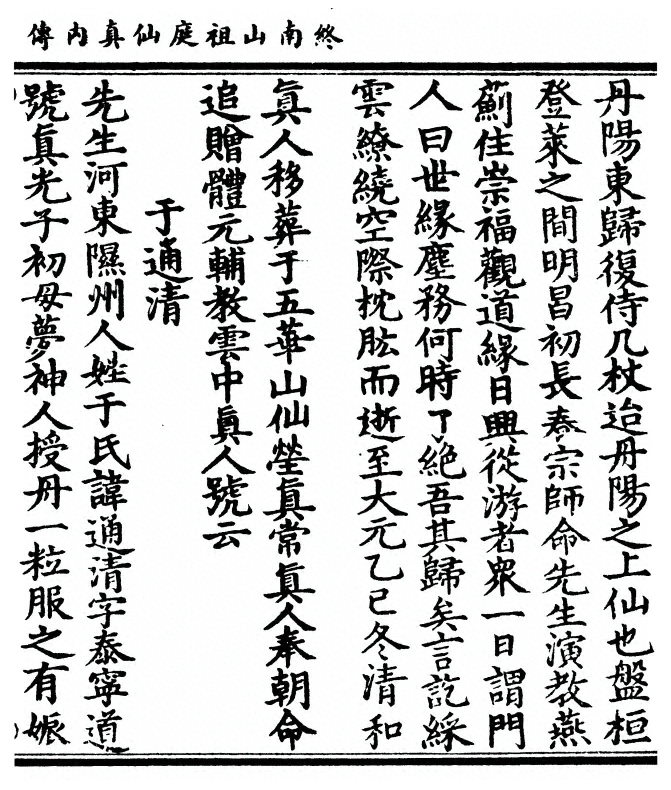 終南山祖庭仙真內傳
丹陽東歸復侍几杖迨丹陽之上仙也盤桓
登萊之間明昌初長春宗師命先生演教燕
薊住崇福觀道緣日興從游者衆一日謂門
人曰世緣塵務何時了絕吾其歸矣言訖綵
雲繚繞空際枕肱而逝至大元乙巳冬清和
真人移葬于五華山仙塋真常真人奉朝命
追贈體元輔教雲中真人號云
于通清
先生河東隰州人姓于氏諱通清字泰寧道
號真光子初母夢神人授丹一粒服之有娠